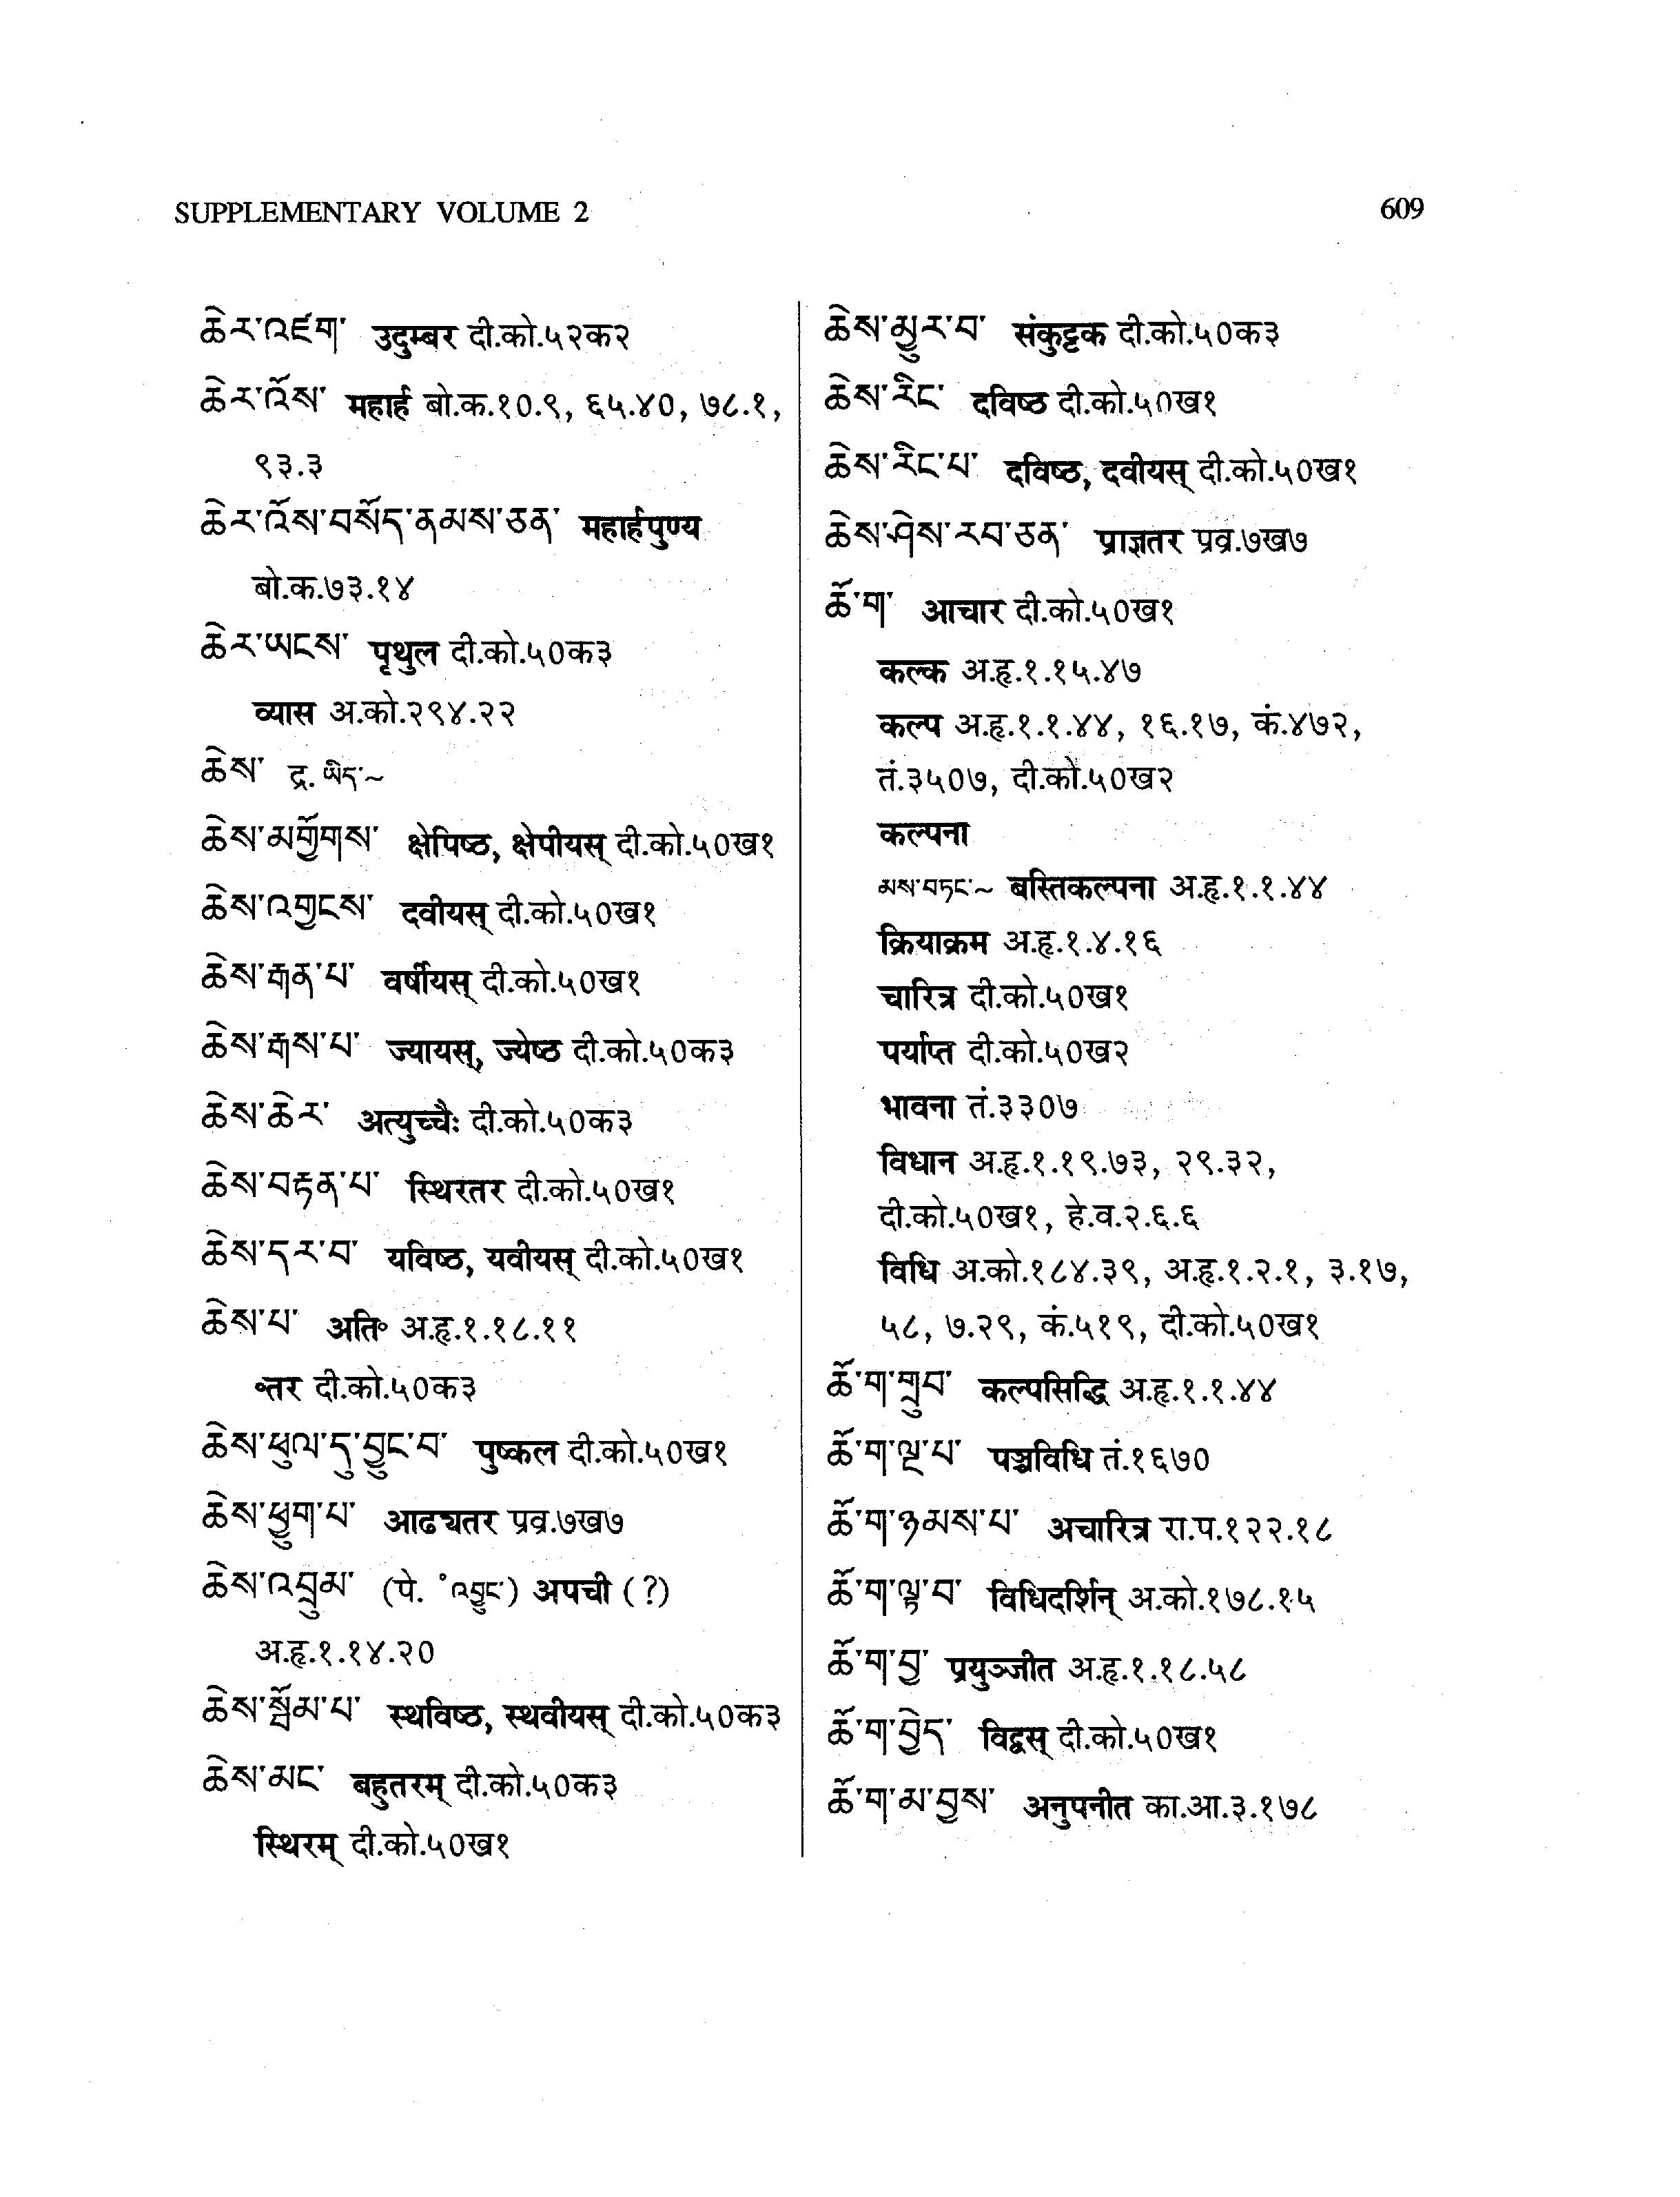 SUPPLEMENTARY VOLUME 2
609
ཆེར་འཛག་ उदुम्बर दी.को.५२क२
ཆེར་འོས་ महार्ह बो.क.१०.९, ६५.४०, ७८.१,
९३.३
ཆེར་འོས་བསོད་ནམས་ཅན་ महार्हपुण्य
बो.क.७३.१४
ཆེར་ཡངས་ पृथुल दी.को.५०क३
व्यास अ.को.२९४.२२
ཆེས་ द्र. ཡིད་~
ཆེས་མགྱོགས་ क्षेपिष्ठ, क्षेपीयस् दी.को.५०ख१
ཆེས་འགྱངས་ दवीयस् दी.को.५०ख१
ཆེས་རྒན་པ་ वर्षीयस् दी.को.५०ख१
ཆེས་རྒས་པ་ ज्यायस्, ज्येष्ठ दी.को.५०क३
ཆེས་ཆེར་ अत्युच्चैः दी.को.५०क३
ཆེས་བརྟན་པ་ स्थिरतर दी.को.५०ख१
ཆེས་དར་བ་ यविष्ठ, यवीयस् दी.को.५०ख१
ཆེས་པ་ अति॰ अ.हृ.१.१८.११
॰तर दी.को.५०क३
ཆེས་ཕུལ་དུ་བྱུང་བ་ पुष्कल दी.को.५०ख१
ཆེས་ཕྱུག་པ་ आढ्यतर प्रव्र.७ख७
ཆེས་འབྲུམ་ (पे. ॰འབྱུང་) अपची (?)
अ.हृ.१.१४.२०
ཆེས་སྦོམ་པ་ स्थविष्ठ, स्थवीयस् दी.को.५०क३
ཆེས་མང་ बहुतरम् दी.को.५०क३
स्थिरम् दी.को.५०ख१
ཆེས་མྱུར་བ་ संकुट्टक दी.को.५०क३
ཆེས་རིང་ दविष्ठ दी.को.५०ख१
ཆེས་རིང་པ་ दविष्ठ, दवीयस् दी.को.५०ख१
ཆེས་ཤེས་རབ་ཅན་ प्राज्ञतर प्रव्र.७ख७
ཆོ་ག་ आचार दी.को.५०ख१
कल्क अ.हृ.१.१५.४७
कल्प अ.हृ.१.१.४४, १६.१७, कं.४७२,
तं.३५०७, दी.को.५०ख२
कल्पना
མས་བཏང་~ बस्तिकल्पना अ.हृ.१.१.४४
क्रियाक्रम अ.हृ.१.४.१६
चारित्र दी.को.५०ख१
पर्याप्त दी.को.५०ख२
भावना तं.३३०७
विधान अ.हृ.१.१९.७३, २९.३२,
दी.को.५०ख१, हे.व.२.६.६
विधि अ.को.१८४.३९, अ.हृ.१.२.१, ३.१७,
५८, ७.२९, कं.५१९, दी.को.५०ख१
ཆོ་ག་གྲུབ་ कल्पसिद्धि अ.हृ.१.१.४४
ཆོ་ག་ལྔ་པ་ पञ्चविधि तं.१६७०
ཆོ་ག་ཉམས་པ་ अचारित्र रा.प.१२२.१८
ཆོ་ག་ལྟ་བ་ विधिदर्शिन् अ.को.१७८.१५
ཆོ་ག་བྱ་ प्रयुञ्जीत अ.हृ.१.१८.५८
ཆོ་ག་བྱེད་ विद्वस् दी.को.५०ख१
ཆོ་ག་མ་བྱས་ अनुपनीत का.आ.३.१७८